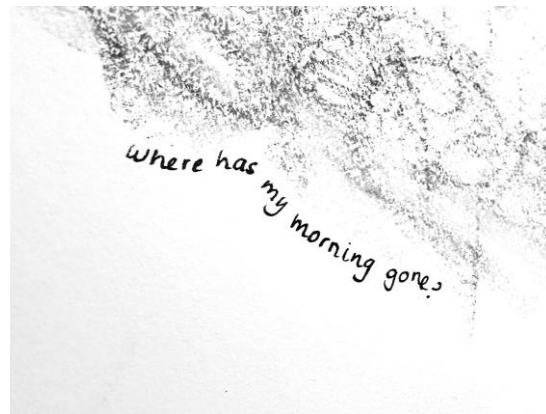 where has my morning gone?